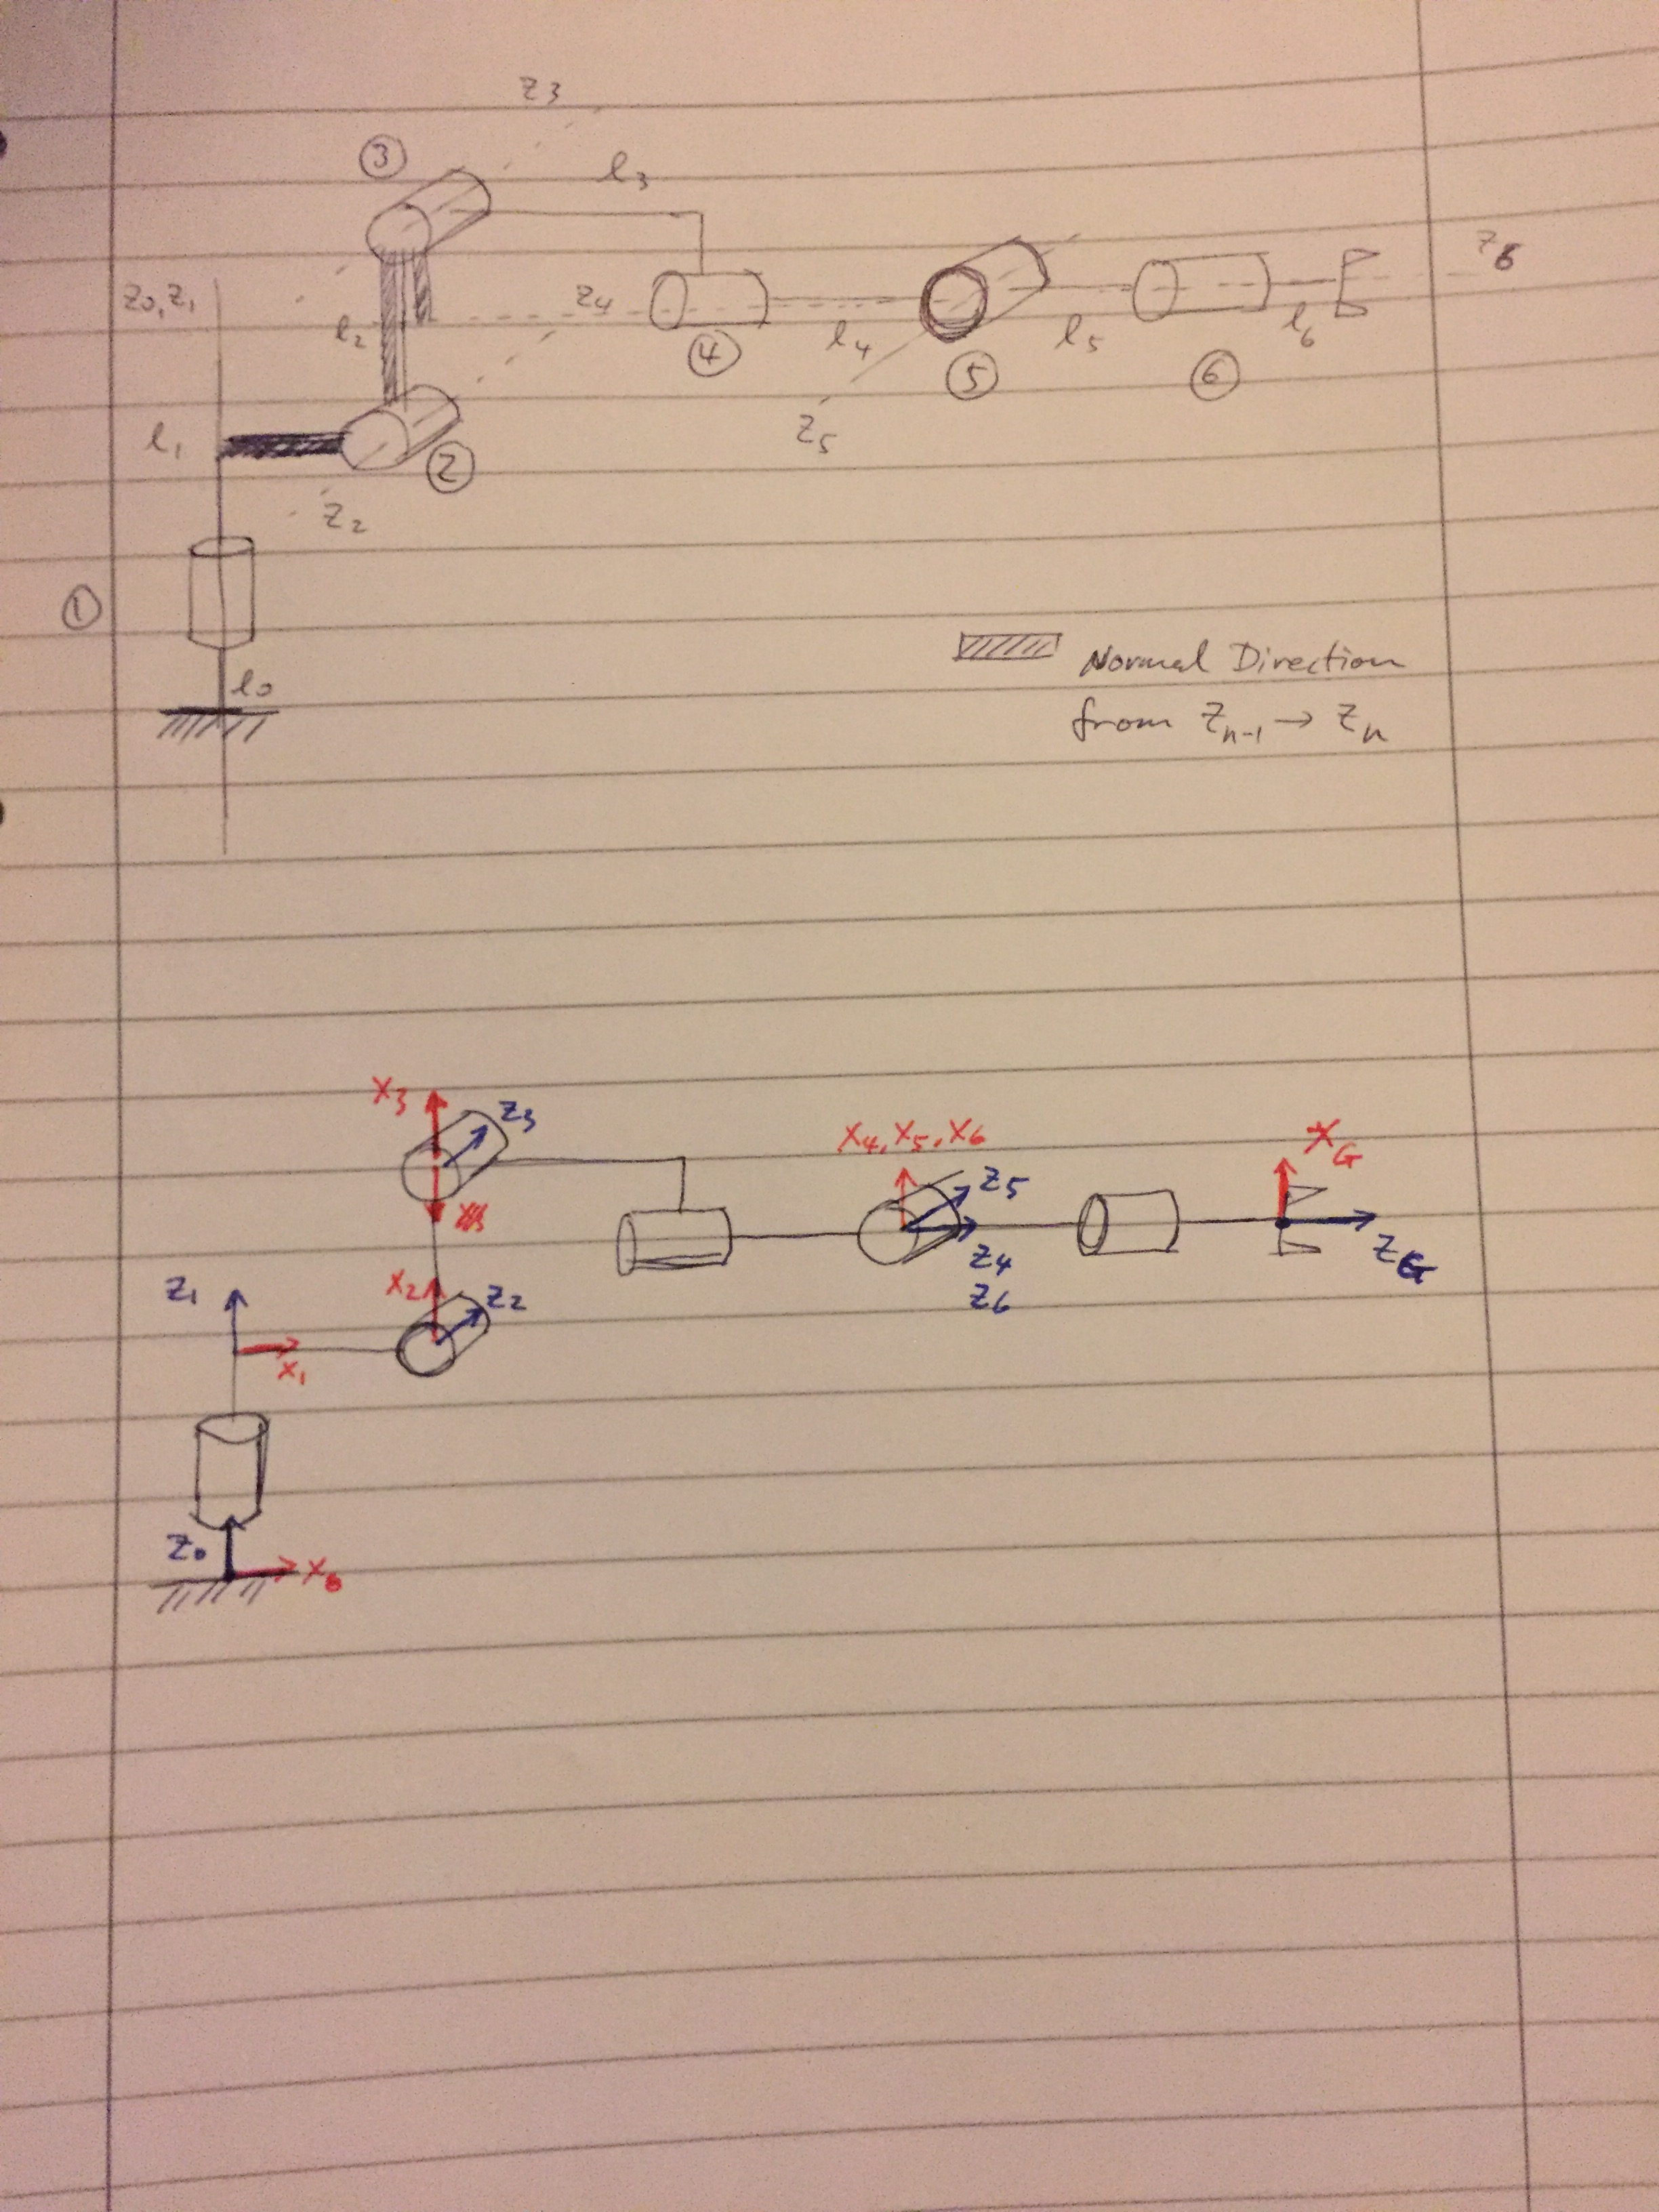 z3
③
l3
z0,z1
z4
z6
l2
l4
l5
l6
④
⑤
⑥
l1
z5
②
z2
①
l0
Normal Direction
from Zn-1 → Zn
X3
z3
X4,X5,X6
XG
z5
z4
z6
ZG
z1
X2
z2
X1
z0
X0